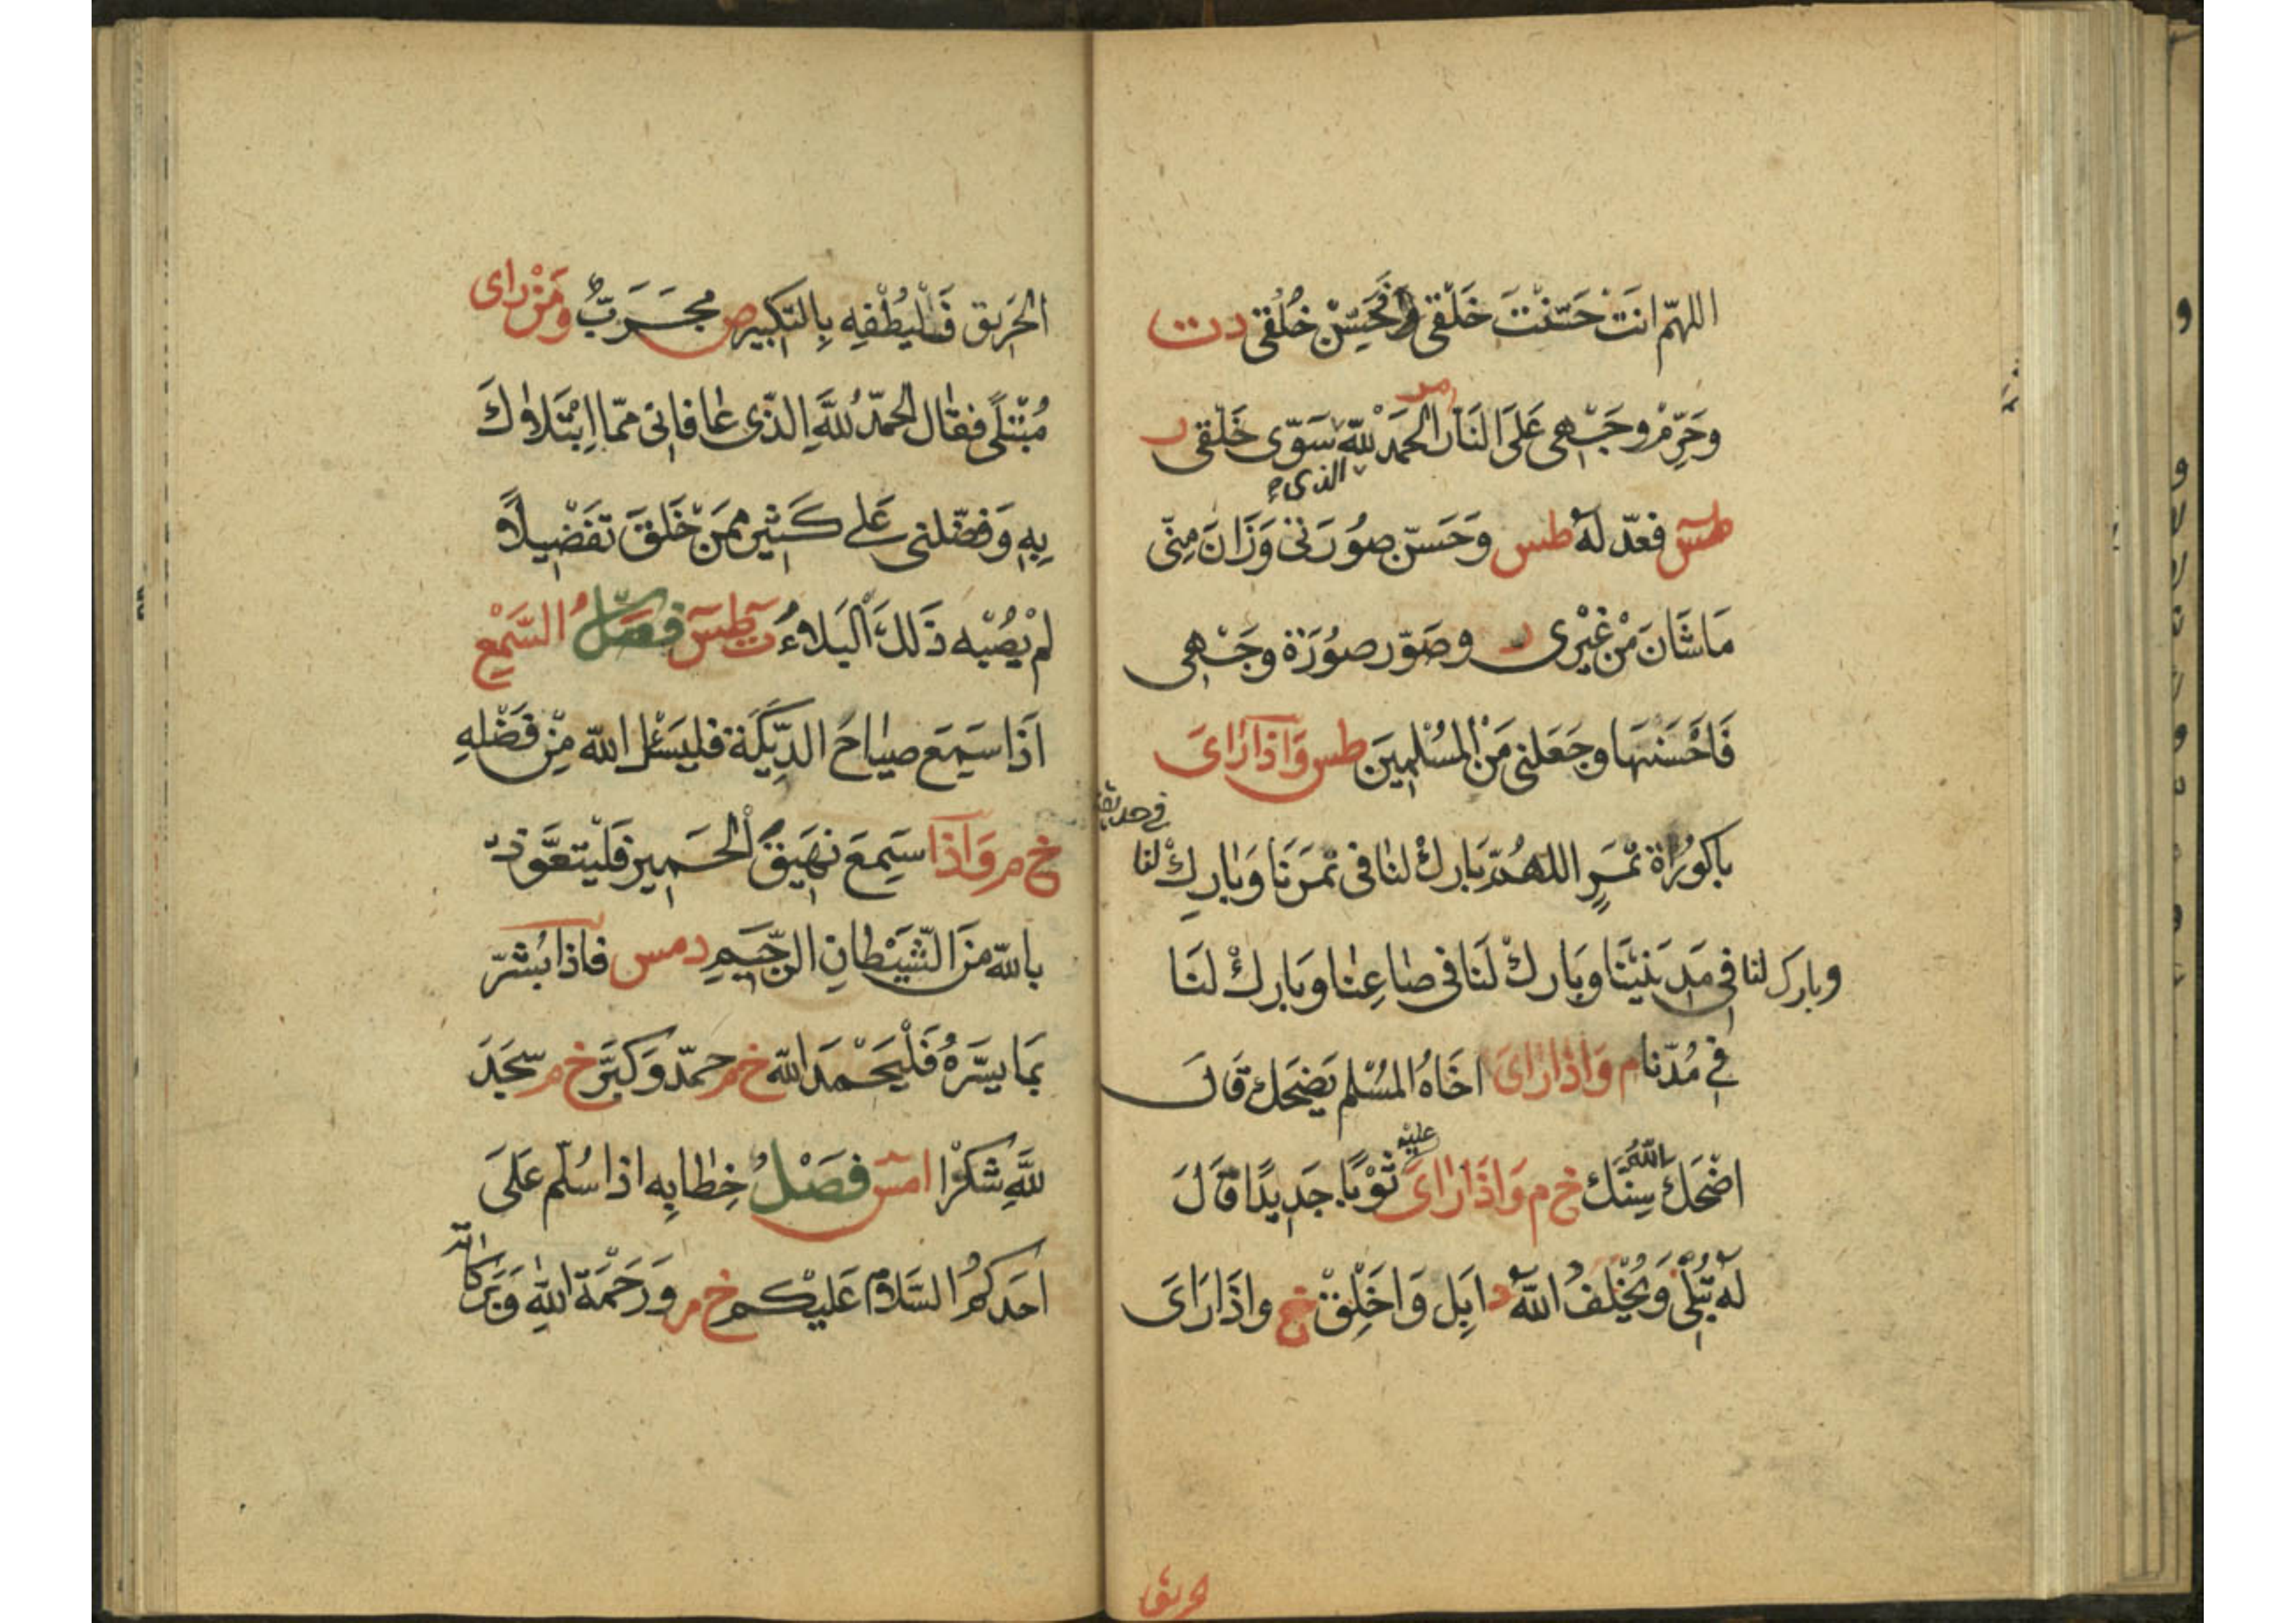 اللهمّ انَتْ حَسَّنْتَ خَلْقى فَحَسِّنْ خُلُقى دت
مر
وَحَرِّمْ وجَهْهى عَلَى النَار الحَمدْ للهِّ سَوّى خَلْقى ر
الذى
طس فعدّ لهٰ طس وَحَسّن صوُرَتى وَزَانَ مِنىّ
مَا شَانَ مْن غيْرى ر وصَوّر صوُرَة وجَهْهى
فَاحْسَنهَا وجَعَلنى مَن المسُلِمِينَ طس وَاذا رَاىَ
باكوُرَاة ثمَرٍ اللهُمّ بَاركْ لنا فى ثمَرنَا وَبَاركِْ لنا
وبارك لنا فى مَدِينَتِنَا وبَاركْ لَنَا فى صَاعِنا وبَاركْ لنَا
فى مُدّنا م وَاذا رَاىَ اخَاهُ المسُلم يَضحَك قالَ
عليْه
اضْحَكَ اللهُ سِنكَّ خ م وَاذَا رَاىَ ثوْبًا جَدِيدًا قالَ
لهٰ تُبْلى وَيُخْلفُ اللهُّ د ابَلِ وَاخَلِقْ خ واذَا رَاىَ
الحريق
الحَرِيق فَلْيُطْفِهِ بِالتّكبيرِ ص مجرَبٌّ ومَنْ رَاى
مُبْتلًى فقال الحمَدُ للهَِّ الذّى عَافانى ممّا ابْتَلاكَ
بِهِ وَفضّلنى عَلى كَثيرٍ ممَنْ خَلقَ تفَضْيلاً
لمْ يصُبْه ذَلكَ البَلاءُ ت طس فصَلٌ السَّمْعِ
اذَا سَمِعَ صيَاحَ الدِّيَكَة فليَسْئل اللهّ مِنْ فضْلِهِ
خ م وَاذا سَمِعَ نَهيَقَ الحَمير فَلْيتعَّوذ
بالله مَن الشّيَطانِ الرّجَيمِ دمس فاذا بُشرّ
بمَا يسَرّهُ فَلْيَحْمَد اللهّ خ م حمدّ وَكبّرَ خ م سَجَدَ
للهَِّ شكرًْا امس فصَلٌ خِطابِه اذا سُلّم عَلىَ
احَدكمُ السَّلامُ عَليْكم خ م وَرَحْمَة اللهِ وَبَرَكاته